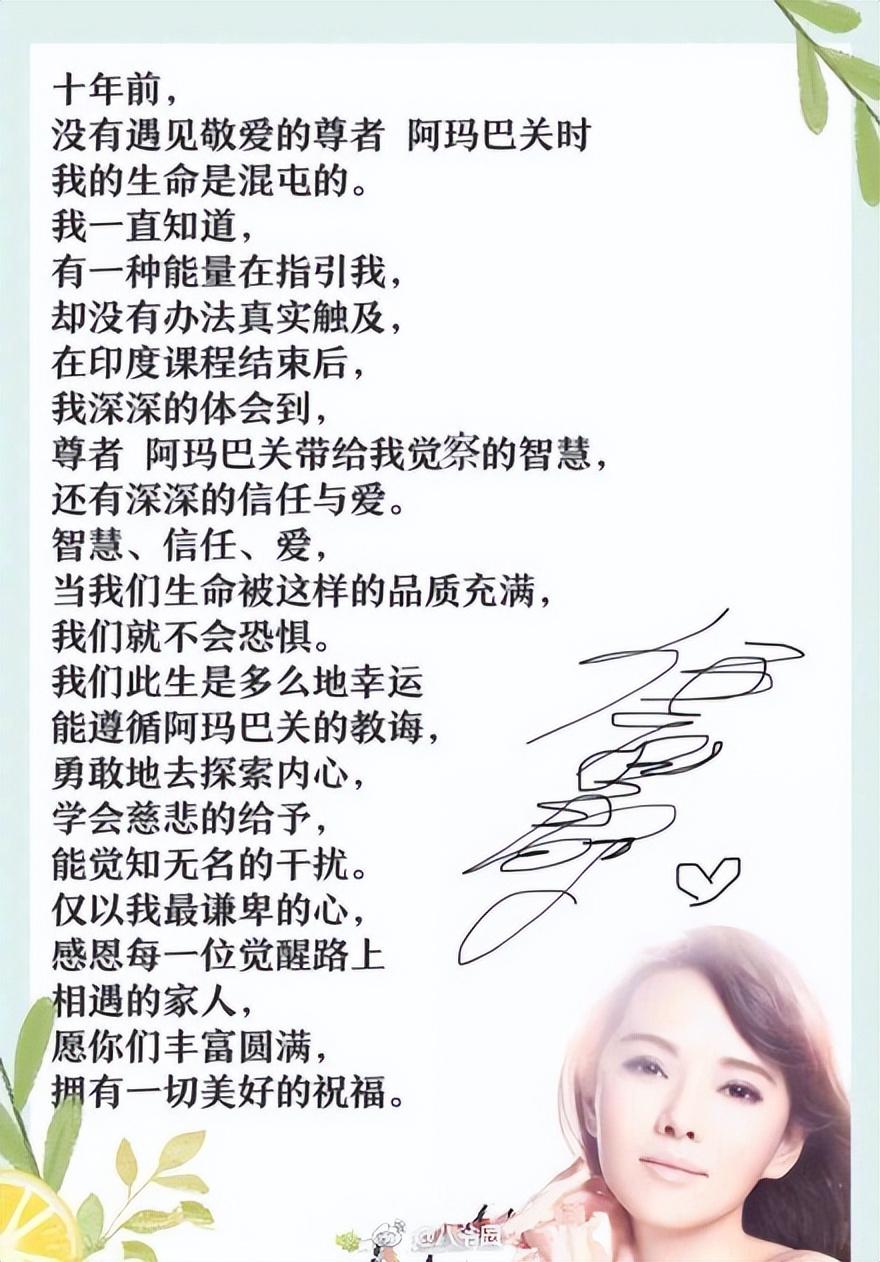 十年前，
没有遇见敬爱的尊者 阿玛巴关时
我的生命是混屯的。
我一直知道，
有一种能量在指引我，
却没有办法真实触及，
在印度课程结束后，
我深深的体会到，
尊者 阿玛巴关带给我觉察的智慧，
还有深深的信任与爱。
智慧、信任、爱，
当我们生命被这样的品质充满，
我们就不会恐惧。
我们此生是多么地幸运
能遵循阿玛巴关的教诲，
勇敢地去探索内心，
学会慈悲的给予，
能觉知无名的干扰。
仅以我最谦卑的心，
感恩每一位觉醒路上
相遇的家人，
愿你们丰富圆满，
拥有一切美好的祝福。